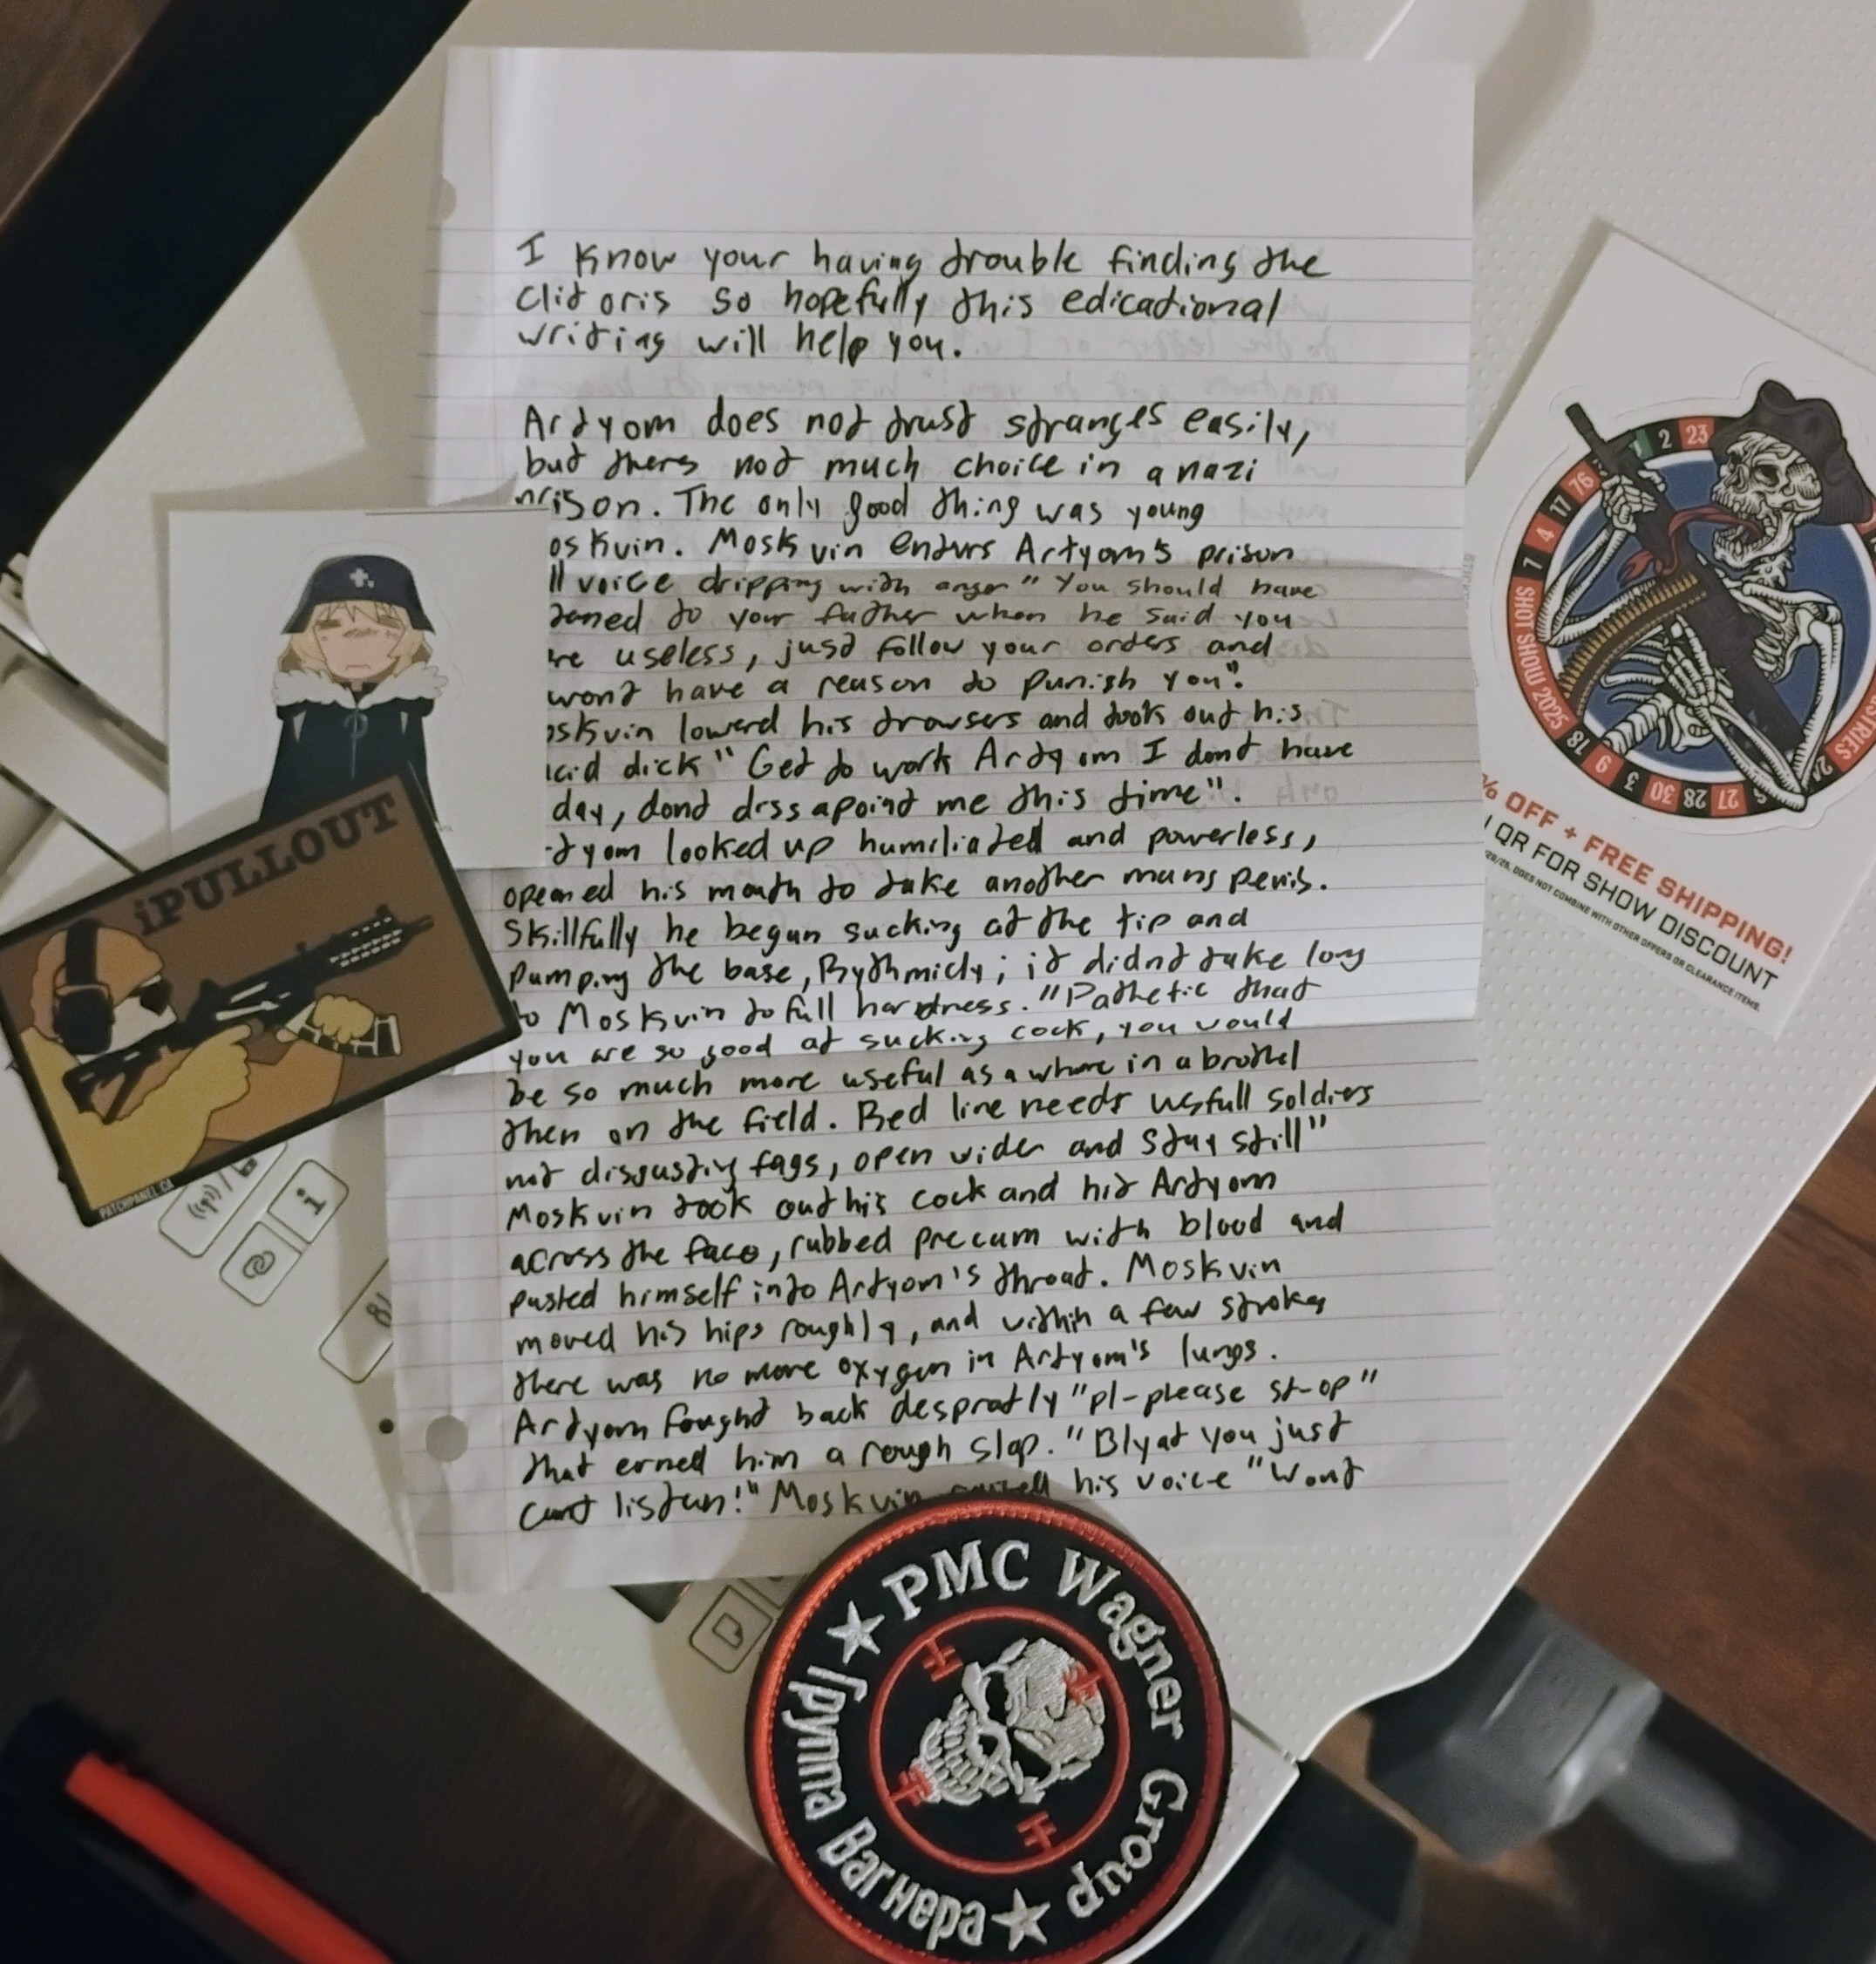 I know your having trouble finding the
clitoris so hopefully this edicational
writing will help you.
Artyom does not trust stranges easily,
but theres not much choice in a nazi
prison. The only good thing was young
oskvin. Moskvin enturs Artyom's prison
ll voice dripping with anger "You should have
tened to your father when he said you
re useless, just follow your orders and
wont have a reason to punish you".
oskvin lowerd his trowsers and took out his
cid dick "Get to work Artyom I dont have
day, dont dissapoint me this time".
tyom looked up humiliated and powerless,
opened his mouth to take another mans penis.
Skillfully he began sucking at the tip and
pumping the base, Rythmicly; it didnt take long
to Moskvin to full hardness. "Pathetic that
you are so good at sucking cock, you would
be so much more useful as a whore in a brothel
then on the field. Red line needs usfull soldiers
not disgusting fags, open wider and stay still"
Moskvin took out his cock and hit Artyom
across the face, rubbed precum with blood and
pusted himself into Artyom's throat. Moskvin
moved his hips roughly, and within a few strokes
there was no more oxygen in Artyom's lungs.
Artyom fought back despratly "pl-please st-op"
that erned him a rough slap. "Blyat you just
cant listen!" Moskvin raised his voice "Wont
iPULLOUT
PATCHPANEL.CA
2 23
76
17
4
7
SHOT SHOW 2025
18
9
3
30
28
27
STRIES
% OFF + FREE SHIPPING!
QR FOR SHOW DISCOUNT
DOES NOT COMBINE WITH OTHER OFFERS OR CLEARANCE ITEMS.
@
i
8
PMC Wagner Group
Группа Вагнера